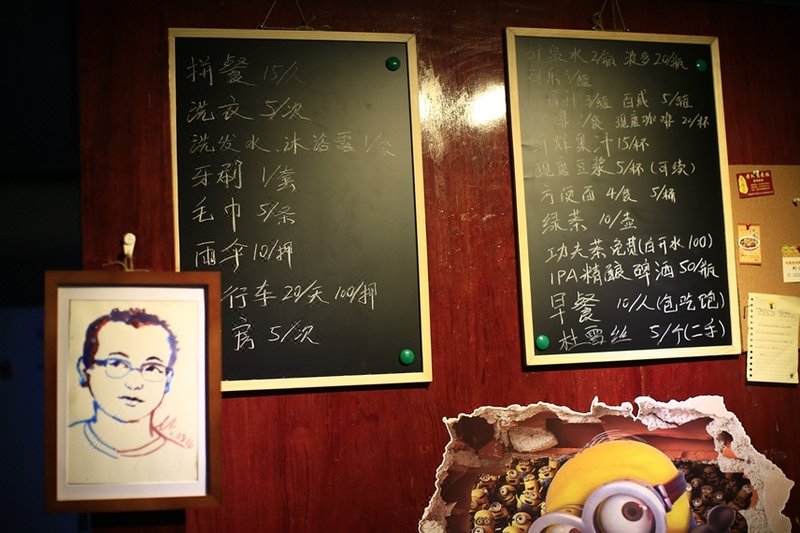 拼餐 15/人
洗衣 5/次
洗发水、沐浴露 1/袋
牙刷 1/套
毛巾 5/条
雨伞 10/押
行车 20/天 100/押
房 5/次
矿泉水 2/瓶 波多 20/瓶
可乐 3/罐
3/罐 百威 5/罐
2/袋 现磨咖啡 20/杯
鲜炸果汁 15/杯
现磨豆浆 5/杯(可续)
方便面 4/袋 5/桶
绿茶 10/壶
功夫茶免费(白开水100)
IPA精酿啤酒 50/瓶
早餐 10/人(包吃饱)
杜雷丝 5/个(二手)